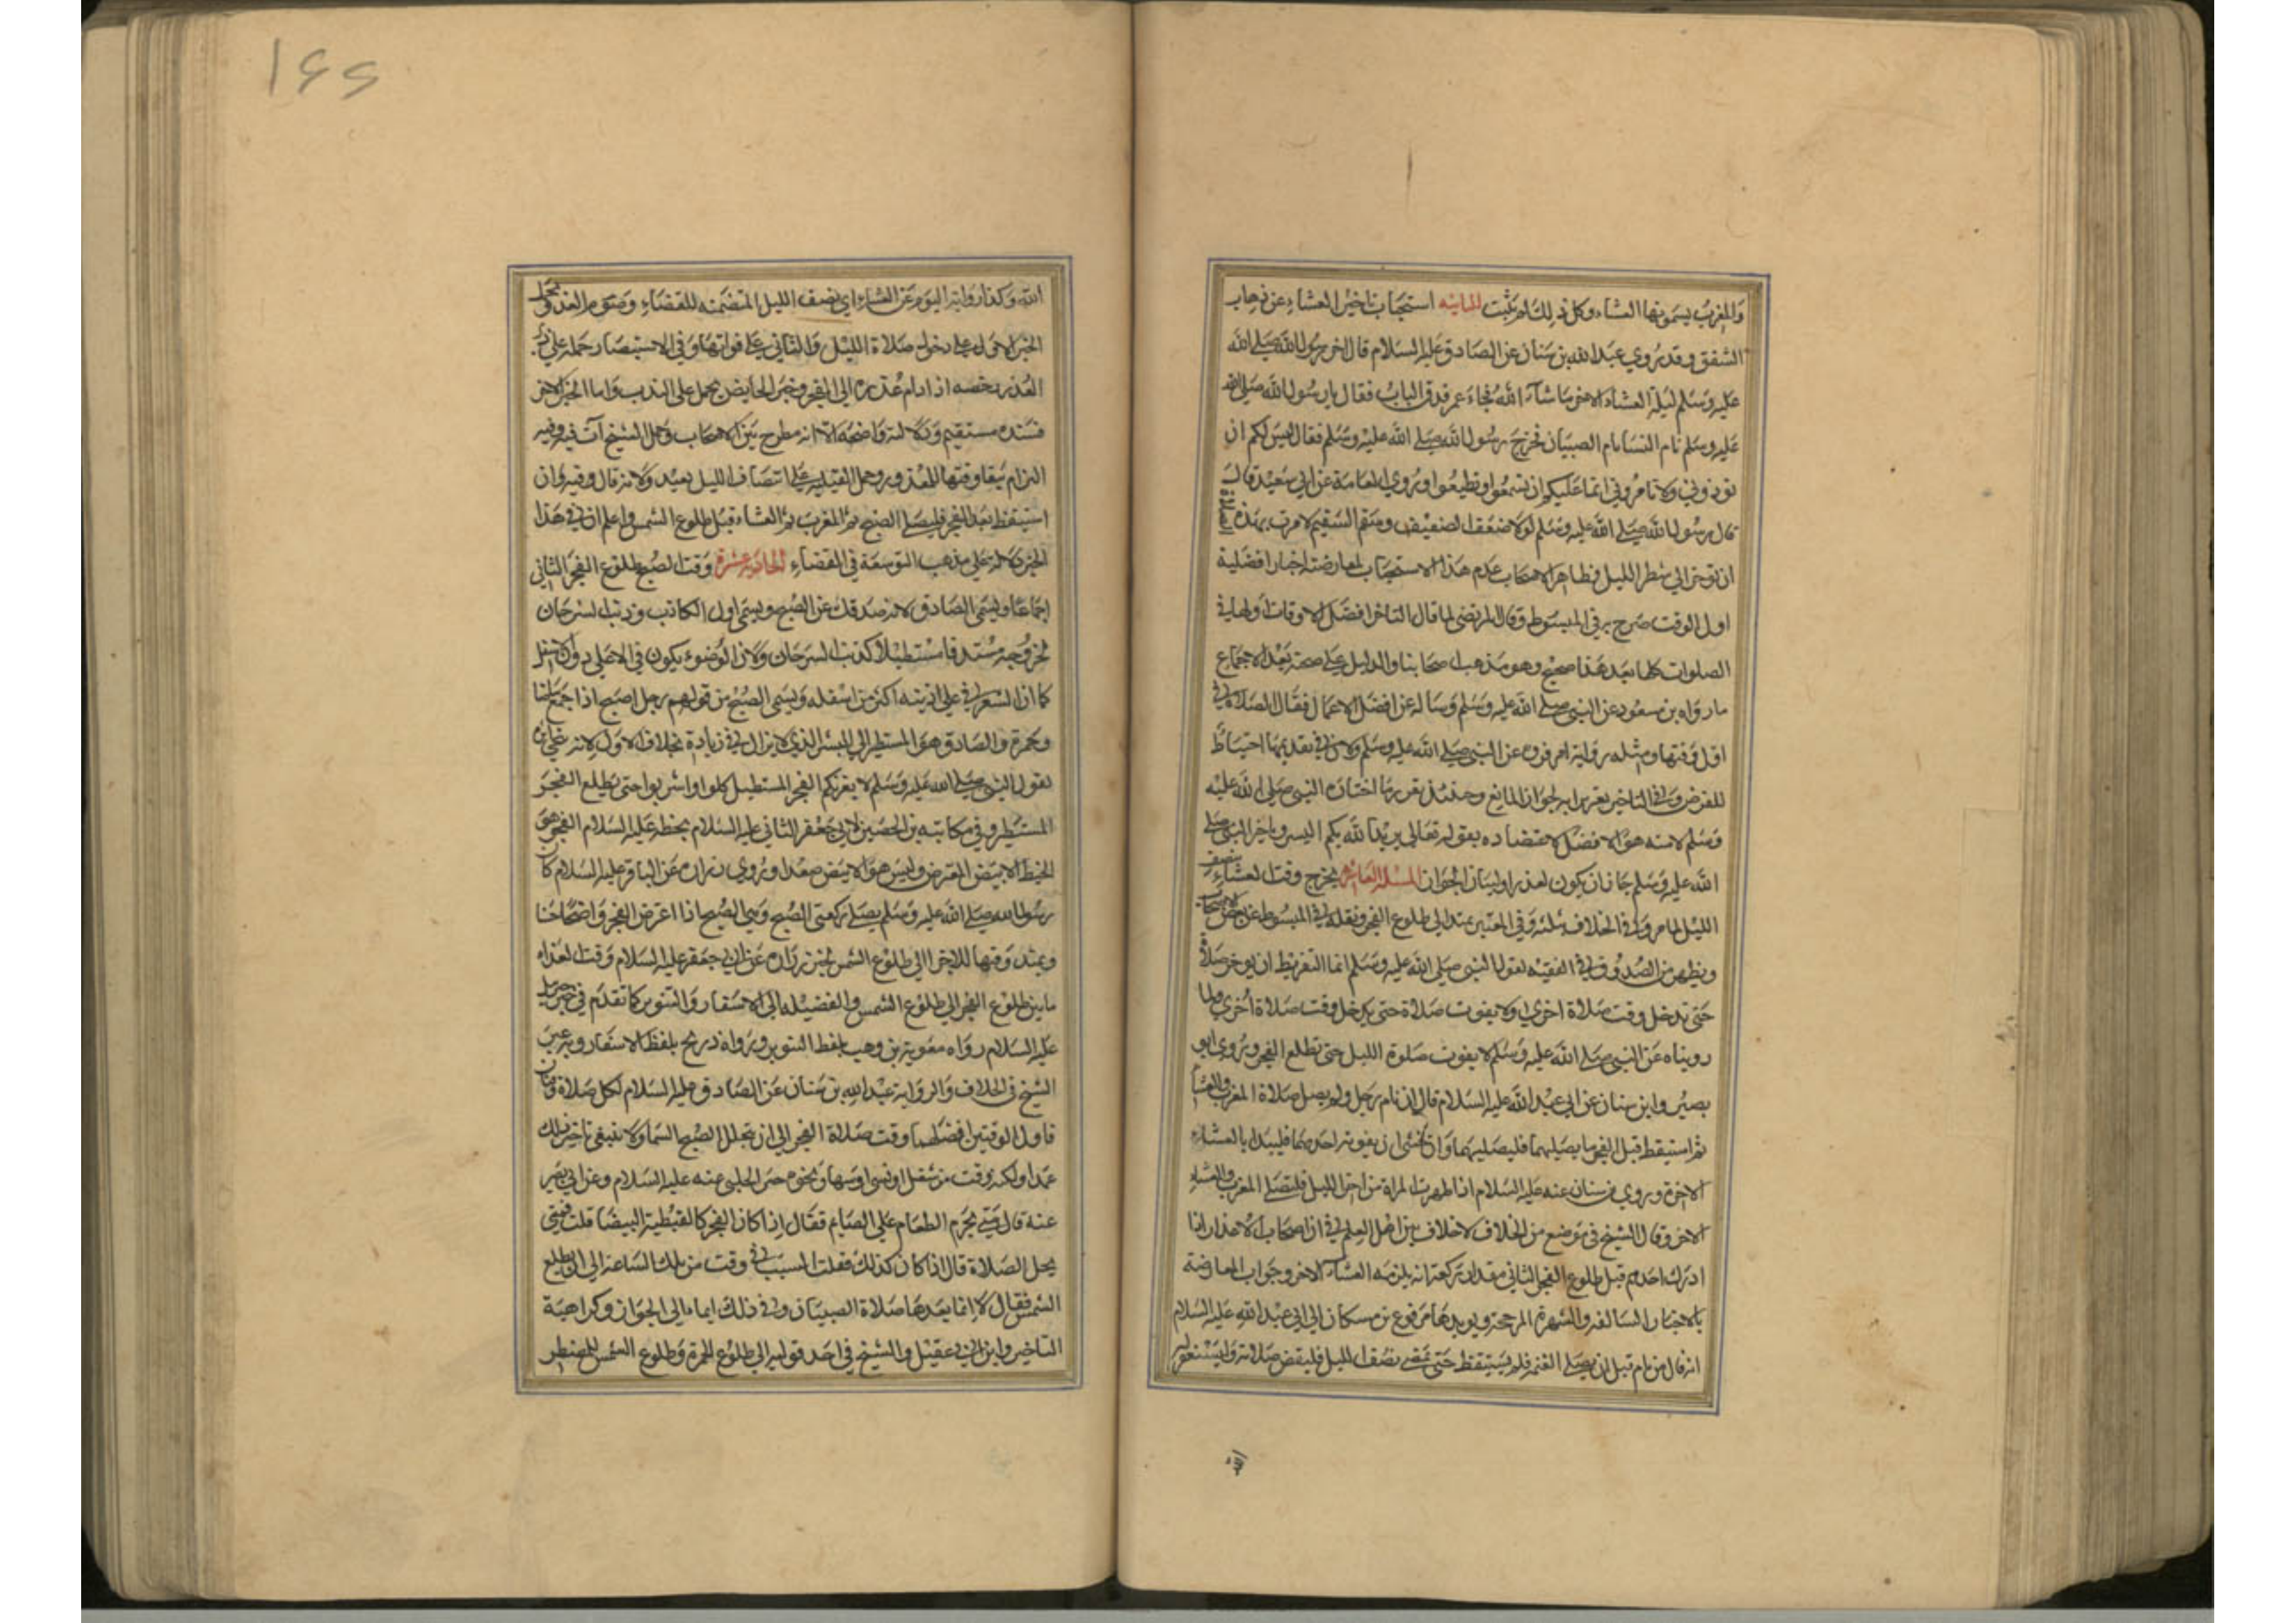 والمغرب يسمونها العشاء وكل ذلك لم يثبت الثامنة استحباب تاخير العشاء عن ذهاب
الشفق وقد روي عبد الله بن سنان عن الصادق عليه السلام قال اخر رسول الله صلى الله
عليه وسلم ليلة العشاء الاخر ما شاء الله فجاء عمر فدق الباب فقال يا رسول الله صلى الله
عليه وسلم نام النسا نام الصبيان فخرج رسول الله صلى الله عليه وسلم فقال ليس لكم ان
توذوني ولا تامروني انما عليكم ان تسمعوا وتطيعوا وروي العامة عن ابي سعيد قال
قال رسول الله صلى الله عليه وسلم لولا ضعف الضعيف وسقم السقيم لامرت بهذه الصلاة
ان توخر الي شطر الليل فظاهر الاصحاب عدم هذا الاستحباب لمعارضته اخبار افضلية
اول الوقت صرح به في المبسوط وقال المرتضى لما قال الناصر افضل الاوقات اولها في
الصلوات كلها بعد هذا صحيح وهو مذهب اصحابنا والدليل على صحته بعد الاجماع
ما رواه بن مسعود عن النبي صلى الله عليه وسلم وساله عن افضل الاعمال فقال الصلاة في
اول وقتها ومثله رواية ام فروه عن النبي صلى الله عليه وسلم ولان في تقديمها احتياطا
للفرض وفي التاخير تغريرا به لجواز المانع وحينئذ نقول ما اختاره النبي صلى الله عليه
وسلم لامته هو الافضل لاعتضاده بقوله تعالى يريد الله بكم اليسر وتاخير النبي صلى
الله عليه وسلم جاز ان يكون لعذر او لبيان الجواز المسئلة العاشرة يخرج وقت العشاء بنصف
الليل لما مر وفي الخلاف بثلثه وفي المعتبر يمتد الى طلوع الفجر ونقله في المبسوط عن بعض الاصحاب
ويظهر من الصدوق في الفقيه لقول النبي صلى الله عليه وسلم انما التفريط ان يوخر صلاة
حتى تدخل وقت صلاة اخري اولا يفوت صلاة حتى يدخل وقت صلاة اخري ولما
رويناه عن النبي صلى الله عليه وسلم لا يفوت صلوة الليل حتى تطلع الفجر وروي ابو
بصير وابن سنان عن ابي عبد الله عليه السلام قال ان نام رجل ولم يصل صلاة المغرب والعشا
ثم استيقظ قبل الفجر ما يصليهما فليصليهما وان خشى ان يفوته احدهما فليبدا بالعشاء
الاخرة وروي بن سنان عنه عليه السلام اذا طهرت المراة من اخر الليل فلتصلي المغرب والعشاء
الاخر وقال الشيخ في موضع من الخلاف لا خلاف بين اهل العلم في ان اصحاب الاعذار اذا
ادرك احدهم قبل طلوع الفجر الثاني مقدار ركعة انه يلزمه العشاء الاخر وجواب المعارضة
بالاخبار السالفه والشهرة المرجحة ويويدها مرفوع بن مسكان الى ابي عبد الله عليه السلام
انه قال من نام قبل ان يصلي العتمه فلم يستيقظ حتى يمضي نصف الليل فليقض صلاته وليستغفر
الله
١٤٥
الله وكذا رواية اليوم عن العشاء اي نصف الليل المتضمنه للقضاء وصوم الغد
الخبر الاول على دخول صلاة الليل والثاني على فواتها وفي الاستبصار حمله على
العذر يخصه اذا دام عذره الي الفجر وخبر الحايض يحمل على الندب واما الخبر الاخر
فسنده مستقيم ودلالته واضحة الا انه مطرح بين الاصحاب وحمل الشيخ آت فيه وفيه
التزام بقا وقتها للمعذور وحمل القبلية على انتصاف الليل بعيد ولانه قال وفيه وان
استيقظ بعد الفجر فليصل الصبح ثم المغرب ثم العشاء قبل طلوع الشمس واعلم ان في هذا
الخبر دلالة على مذهب التوسعة في القضاء الحادية عشرة وقت الصبح طلوع الفجر الثاني
اجماعا ويسمى الصادق لانه صدقك عن الصبح ويسمى اول الكاذب وذنب السرحان
لخروجه مستدقا مستطيلا كذنب السرحان ولان الضوء يكون في الاعلى دون الاسفل
كما ان الشعر في علي الذنب اكثر من اسفله ويسمى الصبح من قولهم رجل اصبح اذا جمع بياضا
وحمرة والصادق هو المستطير اي المنتشر الذي لا يزال في زيادة بخلاف الاول لانه
لقول النبي صلى الله عليه وسلم لا يغرنكم الفجر المستطيل كلوا واشربوا حتى يطلع الفجر
المستطير وفي مكاتبة بن الحصين لابي جعفر الثاني عليه السلام بخطه عليه السلام الفجر هو
الخيط الابيض المعترض وليس هو الابيض صعدا وروي زراره عن الباقر عليه السلام كان
رسول الله صلى الله عليه وسلم يصلي ركعتي الصبح وهي الصبح اذا اعترض الفجر واضحا حسنا
ويمتد وقتها للاجزا الي طلوع الشمس لخبر زراره عن ابي جعفر عليه السلام وقت الغداه
ما بين طلوع الفجر الي طلوع الشمس والفضيله الى الاسفار والتنوير كما تقدم في خبر جبريل
عليه السلام رواه معوية بن وهب بلفظ التنوير ورواه ذريح بلفظ الاسفار وبه عبر
الشيخ في الخلاف والرواية عبد الله بن سنان عن الصادق عليه السلام لكل صلاة وقتان
فاول الوقتين افضلهما وقت صلاة الفجر الي ان يتجلل الصبح السما ولا ينبغي تاخير ذلك
عمدا ولكنه وقت من شغل او نسي او سها ونحوه حسن الحلبي عنه عليه السلام وعن ابي بصير
عنه قال متى يحرم الطعام على الصايم فقال اذا كان الفجر كالقبطية البيضا قلت فمتى
يحل الصلاة قال اذا كان كذلك فقلت السبت في وقت من تلك الساعة الى ان يطلع
الشمس فقال لا انما يعدها صلاة الصبيان وفي ذلك ايماء الى الجواز وكراهية
التاخير وابن ابي عقيل والشيخ في احد قوليه الي طلوع الحمرة وطلوع الشمس للمضطر